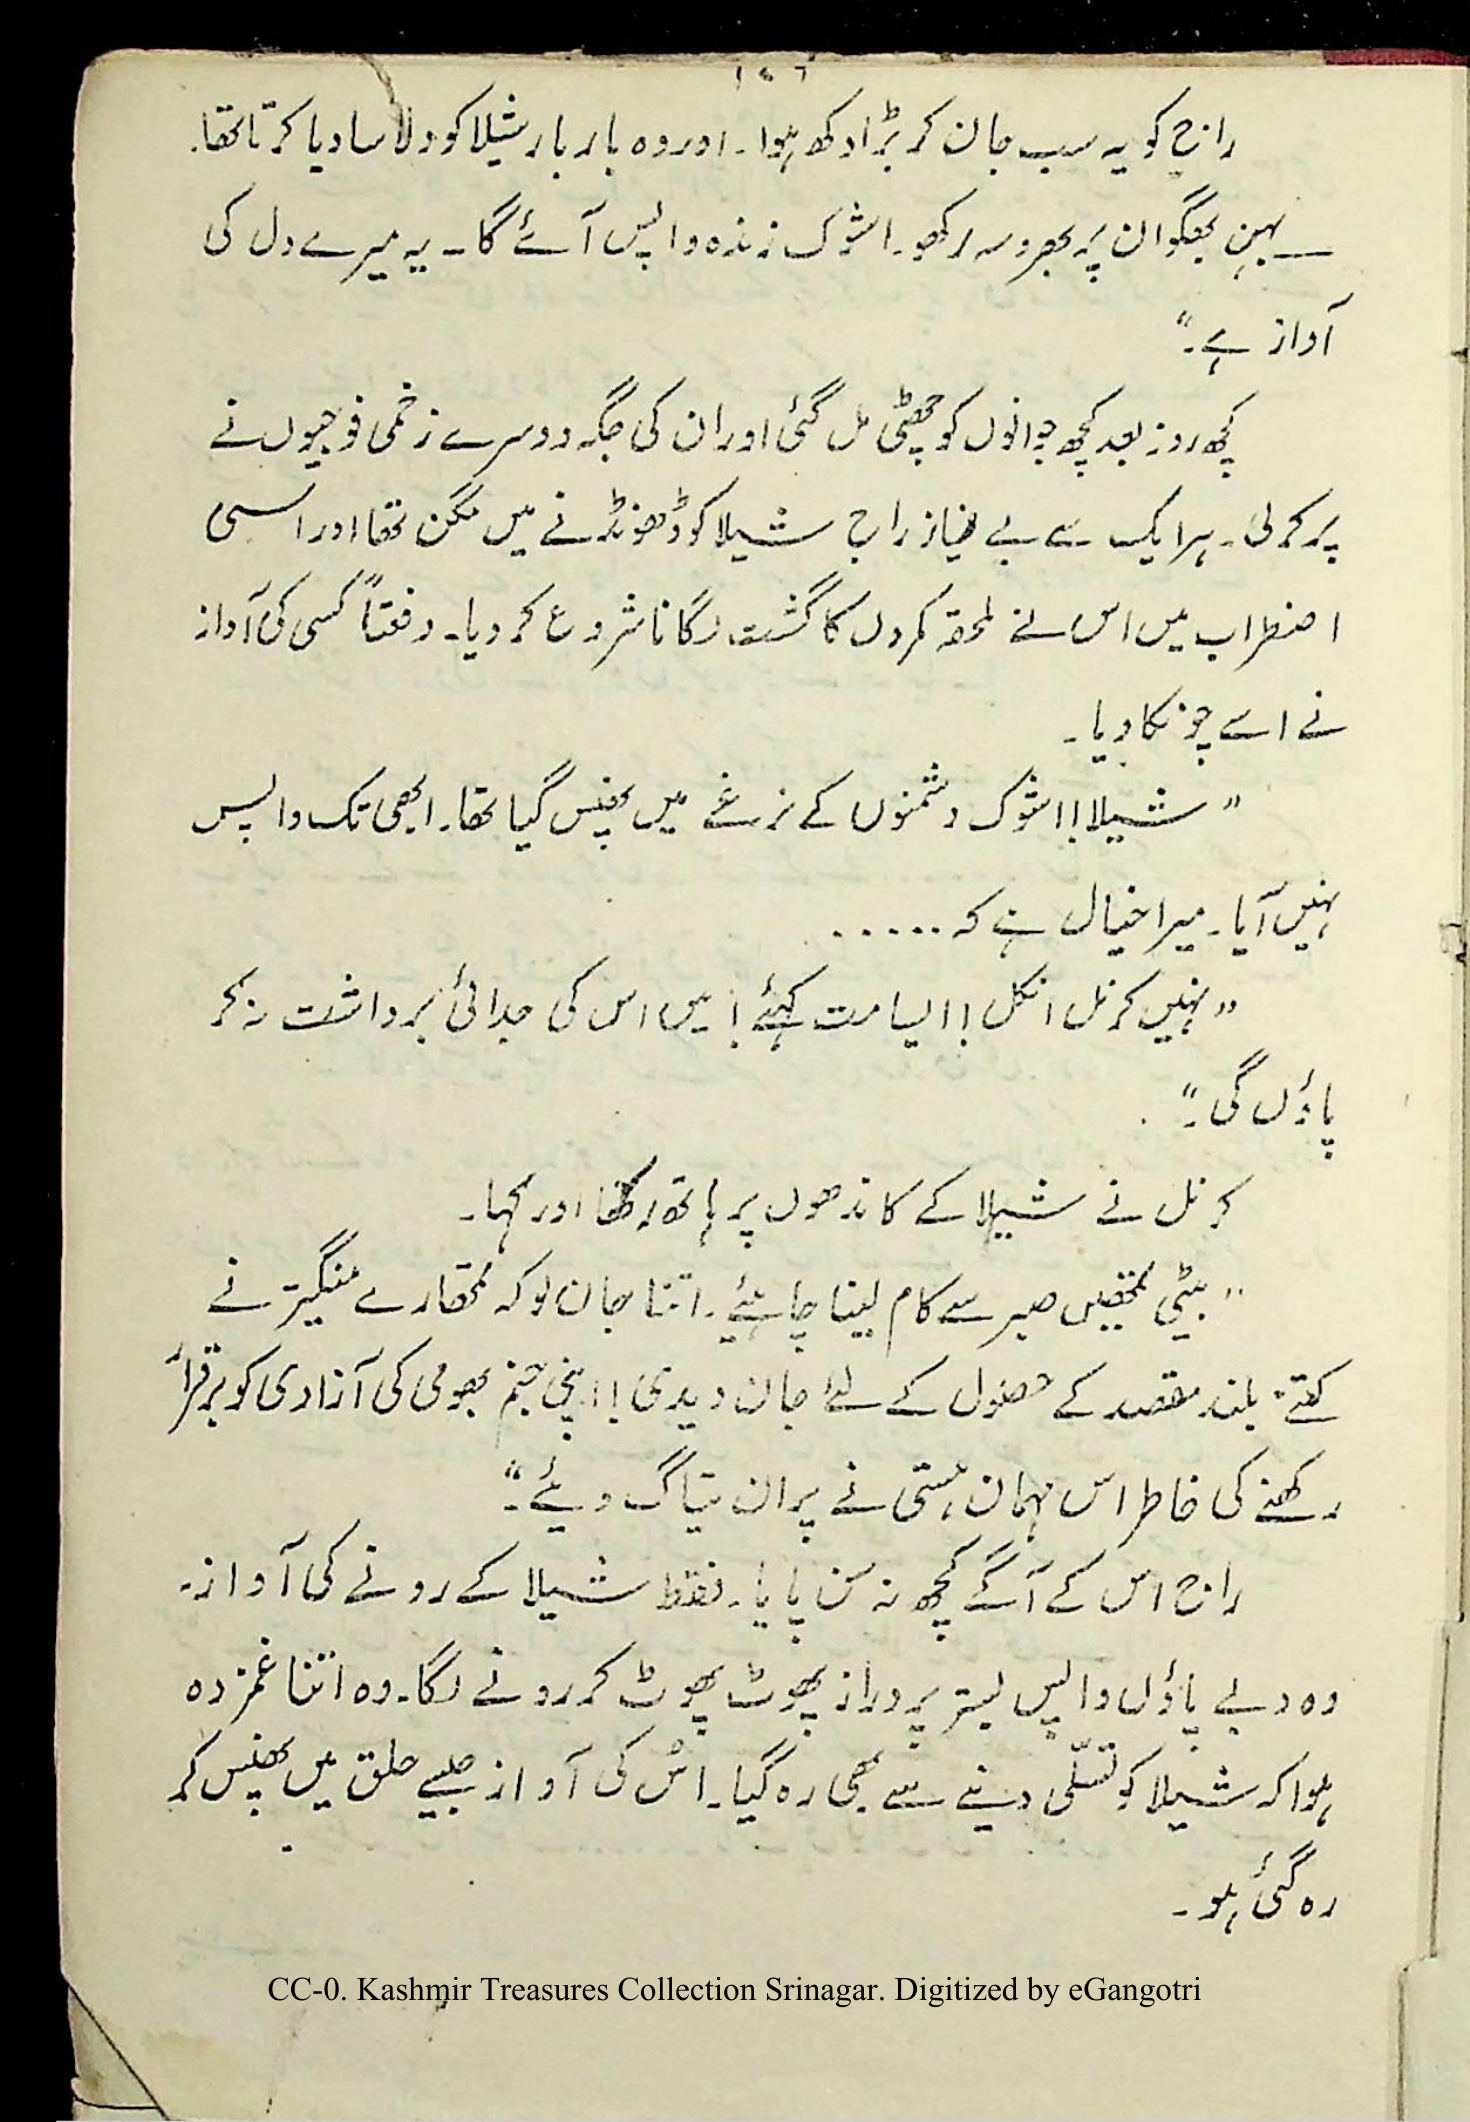 ۱۵۶
راج کو یہ سب جان کر بڑا دکھ ہوا۔ اور وہ بار بار شیلا کو دلاسا دیا کرتا تھا۔
— بہن بھگوان پہ بھروسہ رکھو۔ اشوک زندہ واپس آئے گا۔ یہ میرے دل کی
آواز ہے۔"
کچھ روز بعد کچھ جوانوں کو چھٹی مل گئی اور ان کی جگہ دوسرے زخمی فوجیوں نے
پر کر لی۔ ہر ایک سے بے نیاز راج شیلا کو ڈھونڈنے میں مگن تھا اور اسی
اضطراب میں اس نے ملحقہ کمروں کا گشت لگانا شروع کر دیا۔ دفعتاً کسی کی آواز
نے اسے چونکا دیا۔
"شیلا!! اشوک دشمنوں کے نرغے میں پھنس گیا تھا۔ ابھی تک واپس
نہیں آیا۔ میرا خیال ہے کہ ......
"نہیں کرنل انکل!! ایسا مت کہئے! میں اس کی جدائی برداشت نہ کر
پاؤں گی۔"
کرنل نے شیلا کے کاندھوں پر ہاتھ رکھا اور کہا۔
"بیٹی تمھیں صبر سے کام لینا چاہئیے۔ اتنا جان لو کہ تمھارے منگیتر نے
کتنے بلند مقصد کے حصول کے لئے جان دیدی!! اپنی جنم بھومی کی آزادی کو برقرار
رکھنے کی خاطر اس مہان ہستی نے پران تیاگ دیئے۔"
راج اس کے آگے کچھ نہ سن پایا۔ فقط شیلا کے رونے کی آواز۔
وہ دبے پاؤں واپس بستر پر دراز پھوٹ پھوٹ کر رونے لگا۔ وہ اتنا غمزدہ
ہوا کہ شیلا کو تسلّی دینے سے بھی رہ گیا۔ اُس کی آواز جیسے حلق میں پھنس کر
رہ گئی ہو۔
CC-0. Kashmir Treasures Collection Srinagar. Digitized by eGangotri